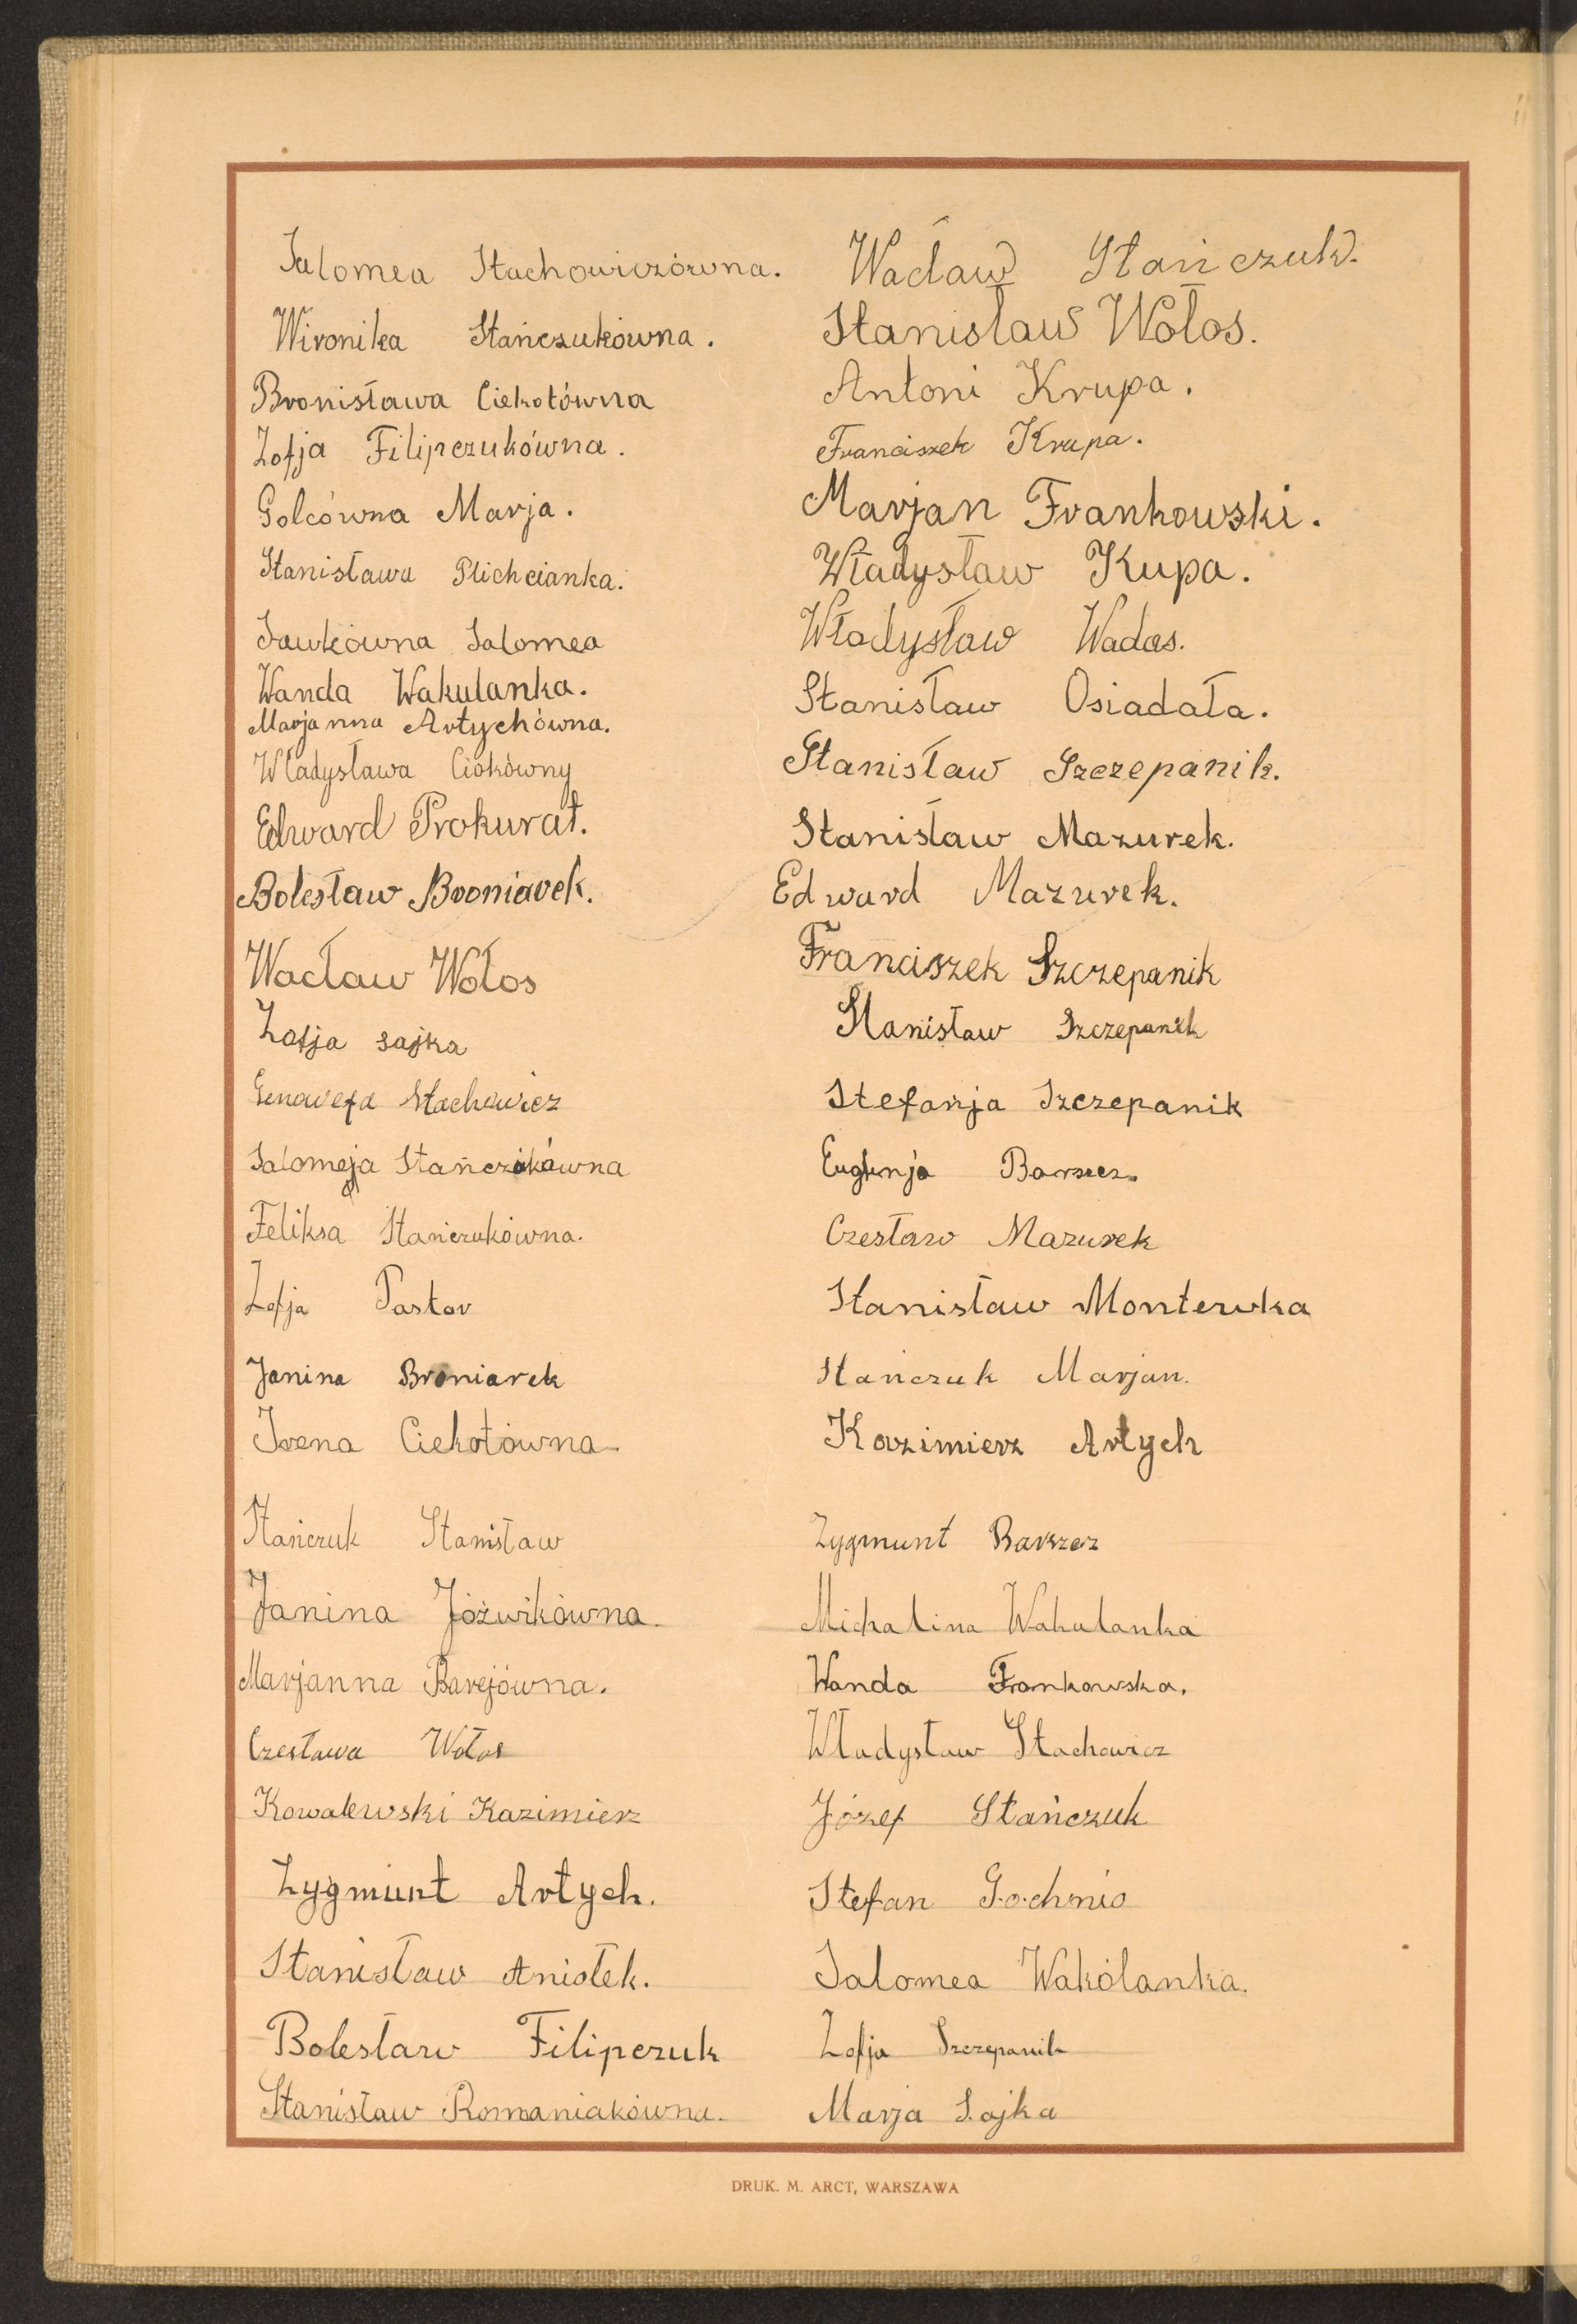 Salomea Stachowiczówna.
Wironika Stańczukówna.
Bronisława Ciekotówna
Zofja Filipczukówna.
Golcówna Marja.
Stanisława Plichcianka.
Sawkówna Salomea
Wanda Wakulanka.
Marjanna Artychówna.
Władysława Ciokówny
Edward Prokurat.
Bolesław Broniarek.
Wacław Wołos
Zofja sajka
Genowefa Stachowicz
Salomeja Stańczukówna
Feliksa Stańczukówna.
Zofja Pastor
Janina Broniarek
Irena Ciekotówna
Stańczuk Stanisław
Janina Jóźwikówna.
Marjanna Barejówna.
Czesława Wołos
Kowalewski Kazimierz
Zygmunt Artych.
Stanisław Aniołek.
Bolesław Filipczuk
Stanisław Romaniakówna.
Wacław Stańczuk.
Stanisław Wołos.
Antoni Krupa.
Franciszek Krupa.
Marjan Frankowski.
Władysław Kupa.
Władysław Wadas.
Stanisław Osiadała.
Stanisław Szczepanik.
Stanisław Mazurek.
Edward Mazurek.
Franciszek Szczepanik
Stanisław Szczepanik
Stefanja Szczepanik
Eugenja Barszcz.
Czesław Mazurek
Stanisław Monterwka
Stańczuk Marjan.
Kazimierz Artych
Zygmunt Barszcz
Michalina Wakulanka
Wanda Frankowska.
Władysław Stachowicz
Józef Stańczuk
Stefan Gochnio
Salomea Wakólanka.
Zofja Szczepanik
Marja Sajka
DRUK. M. ARCT, WARSZAWA